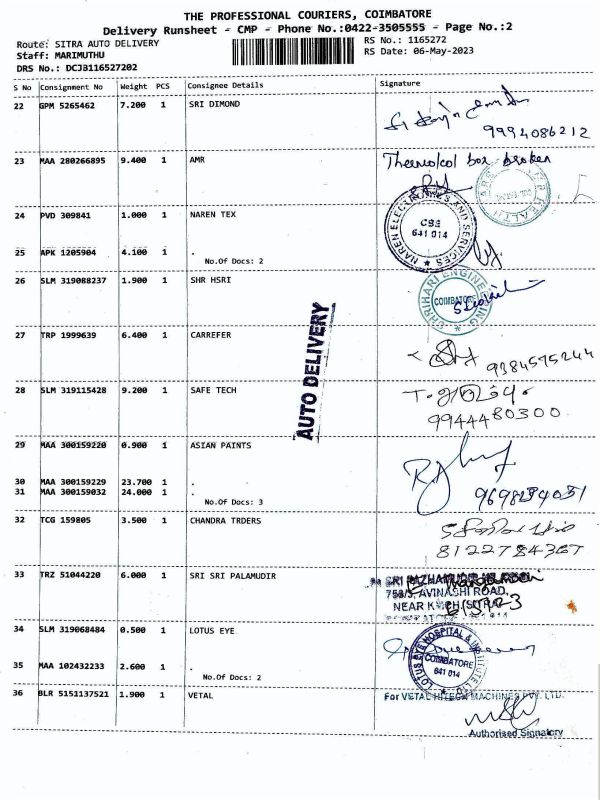 THE PROFESSIONAL COURIERS, COIMBATORE
Delivery Runsheet - CMP - Phone No.:0422-3505555 - Page No.:2
Route: SITRA AUTO DELIVERY
RS No.: 1165272
Staff: MARIMUTHU
RS Date: 06-May-2023
DRS No.: DCJB116527202
S No Consignment No Weight PCS Consignee Details Signature
22 GPM 5265462 7.200 1 SRI DIMOND
9994086212
23 MAA 280266895 9.400 1 AMR
Thermokol box broken
24 PVD 309841 1.000 1 NAREN TEX
NAREN ELECTRONICS AND SERVICES
CBE
641 014
25 APK 1205904 4.100 1 .
No.Of Docs: 2
26 SLM 319088237 1.900 1 SHR HSRI
SHRIHARI ENGINEERING
COIMBATORE
27 TRP 1999639 6.400 1 CARREFER
9384575244
AUTO DELIVERY
28 SLM 319115428 9.200 1 SAFE TECH
9944480300
29 MAA 300159220 0.900 1 ASIAN PAINTS
30 MAA 300159229 23.700 1 .
31 MAA 300159032 24.000 1 .
No.Of Docs: 3
32 TCG 159805 3.500 1 CHANDRA TRDERS
8122784367
33 TRZ 51044220 6.000 1 SRI SRI PALAMUDIR
AVINASHI ROAD,
34 SLM 319068484 0.500 1 LOTUS EYE
LOTUS EYE HOSPITAL & INSTITUTE
COIMBATORE
641 014
35 MAA 102432233 2.600 1 .
No.Of Docs: 2
36 BLR 5151137521 1.900 1 VETAL
For VETAL HITECH MACHINES PVT. LTD.
Authorised Signatory